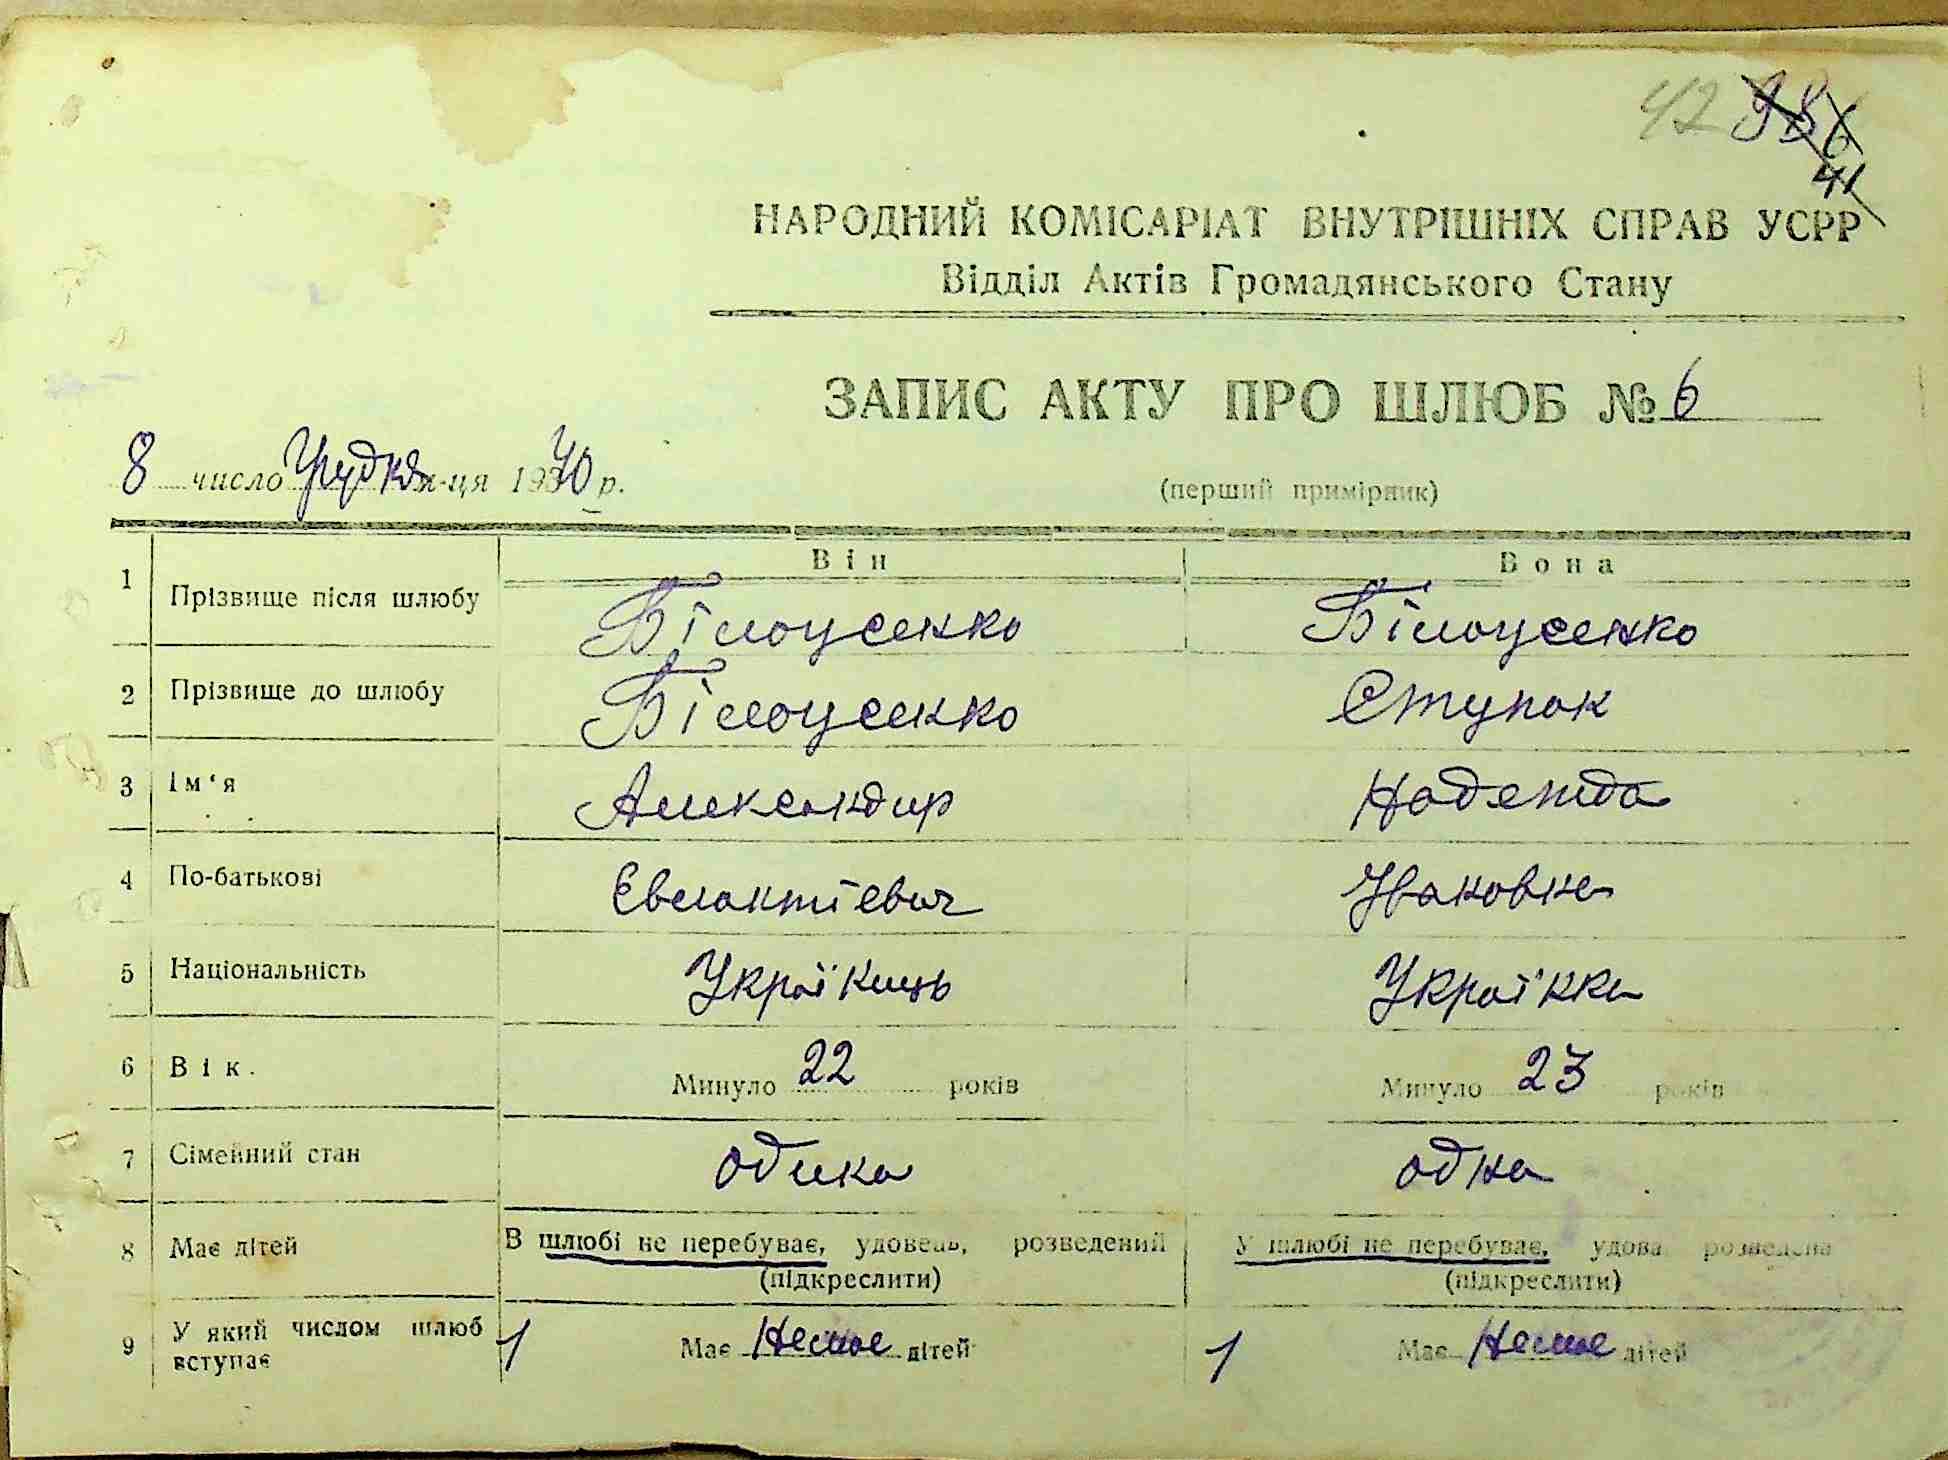 42 936
41
НАРОДНИЙ КОМІСАРІАТ ВНУТРІШНІХ СПРАВ УСРР
Відділ Актів Громадянського Стану
ЗАПИС АКТУ ПРО ШЛЮБ № 6
8 число Грудня м-ця 1940 р.
(перший примірник)
Він Вона
1 Прізвище після шлюбу Білоусенко Білоусенко
2 Прізвище до шлюбу Білоусенко Ступак
3 Ім'я Александир Надежда
4 По-батькові Евлактіевич Івановна
5 Національність Українець Українка
6 Вік. Минуло 22 років Минуло 23 років
7 Сімейний стан одна
8 Має дітей В шлюбі не перебуває, удовець, розведений У шлюбі не перебуває, удова розведена
(підкреслити) (підкреслити)
9 У який числом шлюб вступає 1 Має Немае дітей 1 Має Немае дітей